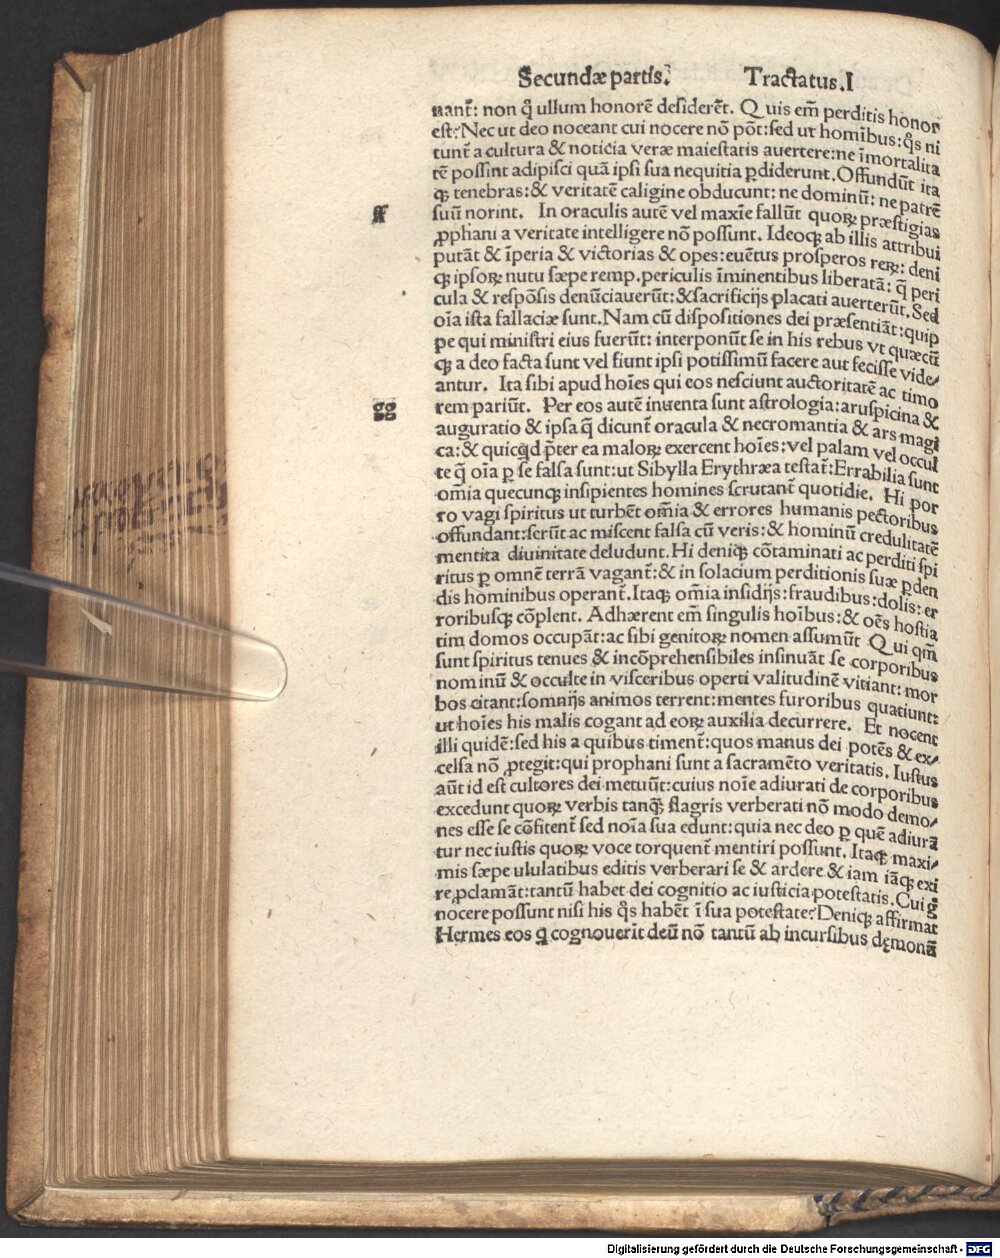 Secundæ partis. Tractatus.I
nant̃: non ꝙ ullum honorē desiderēt. Quis em̄ perditis honor
est? Nec ut deo noceant cui nocere nō põt: sed ut hominibus: q̊s ni
tunt̃ a cultura & noticia veræ maiestatis avertere: ne īmortalita
tē possint adipisci quā ipsi sua nequitia ꝑdiderunt. Offundūt ita
qꝫ tenebras: & veritatē caligine obducunt: ne dominū: ne patrē
ff
suū norint. In oraculis autē vel maxīe fallūt quoꝝ præstigias
ꝓphani a veritate intelligere nō possunt. Ideoqꝫ ab illis attribui
putāt & īperia & victorias & opes: euētus prosperos reꝝ: deni
qꝫ ipsoꝝ nutu sæpe remp. periculis īminentibus liberatā: q̄ peri
cula & respōsis denūciauerūt: & sacrificijs placati auerterūt. Sed
oīa ista fallaciæ sunt. Nam cū dispositiones dei præsentiāt: quip
pe qui ministri eius fuerūt: interponūt se in his rebus vt quæcū
qꝫ a deo facta sunt vel fiunt ipsi potissimū facere aut fecisse vide/
antur. Ita sibi apud hoīes qui eos nesciunt auctoritatē ac timo
gg
rem pariūt. Per eos autē inuenta sunt astrologia: aruspicina &
auguratio & ipsa q̄ dicunt̃ oracula & necromantia & ars magi
ca: & quicqͥd p̄ter ea maloꝝ exercent hoīes: vel palam vel occul
te q̄ oīa ꝑ se falsa sunt: ut Sibylla Erythræa testat̃: Errabilia sunt
omīa quecunqꝫ insipientes homines scrutant̃ quotidie. Hi por
ro vagi spiritus ut turbēt omīa & errores humanis pectoribus
offundant: serūt ac miscent falsa cū veris: & hominū credulitatē
mentita diuinitate deludunt. Hi deniqꝫ cōtaminati ac perditi spi
ritus ꝑ omnē terrā vagant̃: & in solacium perditionis suæ ꝑden
dis hominibus operant̃. Itaqꝫ omīa insidijs: fraudibus: dolis: er
roribusqꝫ cōplent. Adhærent em̄ singulis hoībus: & oēs hostia
tim domos occupāt: ac sibi genitoꝝ nomen assumūt Qui qm̄
sunt spiritus tenues & incōprehensibiles insinuāt se corporibus
nominū & occulte in visceribus operti valitudinē vitiant: mor
bos citant: somnijs animos terrent: mentes furoribus quatiunt:
ut hoīes his malis cogant ad eoꝝ auxilia decurrere. Et nocent
illi quidē: sed his a quibus timent̃: quos manus dei potēs & ex/
celsa nō ꝓtegit: qui prophani sunt a sacramēto veritatis. Iustus
aūt id est cultores dei metuūt: cuius noīe adiurati de corporibus
excedunt quoꝝ verbis tanqꝫ flagris verberati nō modo demo/
nes esse se cōfitent̃ sed noīa sua edunt: quia nec deo ꝑ quē adiurā
tur nec iustis quoꝝ voce torquent̃ mentiri possunt. Itaqꝫ maxi/
mis sæpe ululatibus editis verberari se & ardere & iam iāqꝫ exi
re ꝓclamāt: tantū habet dei cognitio ac iusticia potestatis. Cui g̊
nocere possunt nisi his q̊s habēt ī sua potestate? Deniqꝫ affirmat
Hermes eos q̇ cognouerīt deū nō tantū ab incursibus dęmonū
Digitalisierung gefördert durch die Deutsche Forschungsgemeinschaft - DFG